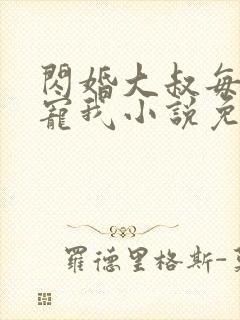 閃婚大叔每
寵我小說免
羅德里格斯-莫